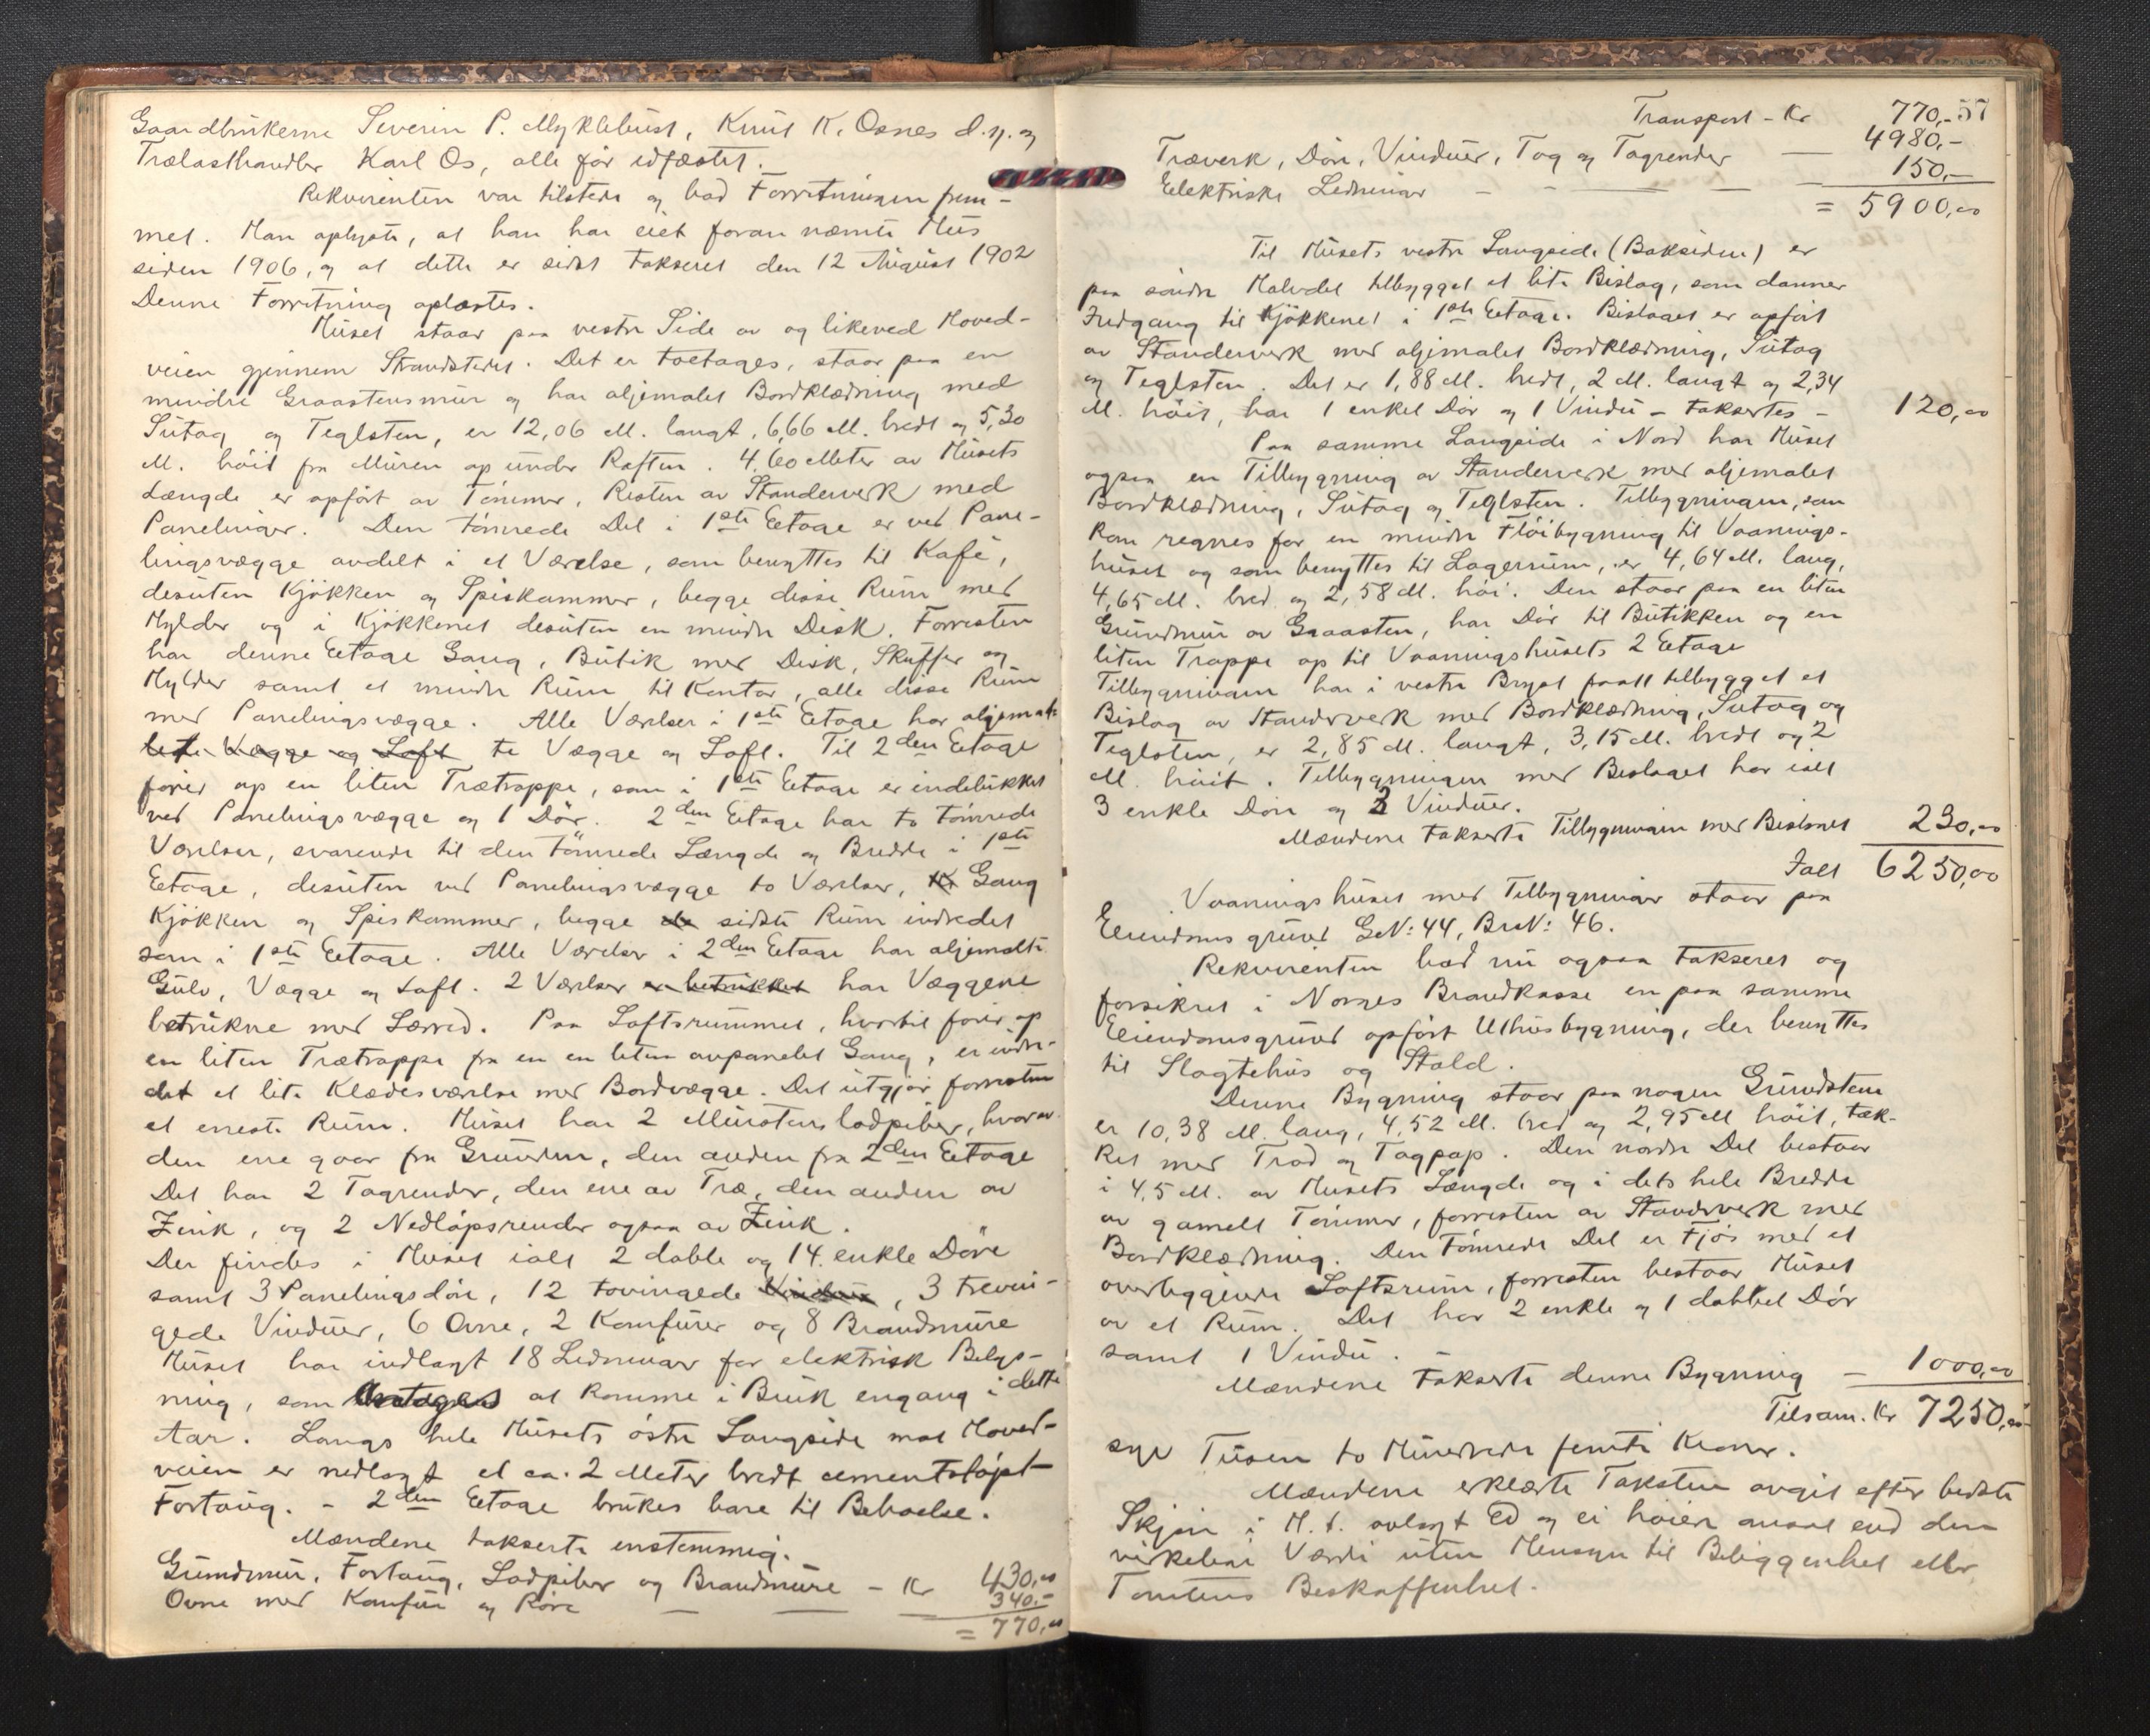 Gaardbrukerne Severin P. Myklebust, Knut K. Osnes d.y. og
Trælasthandler Karl Os, alle før edfæstet.
Rekvirenten var tilstede og bad Forretningen frem-
met. Han oplyste, at han har eiet foran nævnte Hus
siden 1906, og at dette er sidst takseret den 12 August 1902
Denne Forretning oplæstes.
Huset staar paa vestre Side av og likeved Hoved-
veien gjennem Strandstedet. Det er toetages, staar paa en
mindre Graastensmur og har oljemalet Bordklædning med
Sutag og Teglsten, er 12,06 M. langt, 6,66 M. bredt og 5,30
M. høit fra Muren op under Raften. 4,60 Meter av Husets
Længde er opført av Tømmer, Resten av Standerverk med
Panelinger. Den tømrede Del i 1ste Etage er ved Pane-
lingsvægge avdelt i et Værelse, som benyttes til Kafé,
desuten Kjøkken og Spiskammer, begge disse Rum med
Hylder og i Kjøkkenet desuten en mindre Disk. Forresten
har denne Etage Gang, Butik med Disk, Skuffer og
Hylder samt et mindre Rum til Kontor, alle disse Rum
med Panelingsvægge. Alle Værelser i 1ste Etage har oljemal-
lete Vægge og Loft te Vægge og Loft. Til 2den Etage
fører op en liten Trætrappe, som i 1ste Etage er indelukket
ved Panelingsvægge og 1 Dør. 2den Etage har to tømrede
Værelser, svarende til den tømrede Længde og Bredde i 1ste
Etage, desuten ved Panelingsvægge to Værelser, Gang
Kjøkken og Spiskammer, begge de sidste Rum indredet
som i 1ste Etage. Alle Værelser i 2den Etage har oljemalte
Gulv, Vægge og Loft. 2 Værelser er betrukket har Væggene
betrukne med Lærred. Paa Loftsrummet, hvortil fører op
en liten Trætrappe fra en en liten avpanelet Gang, er indre-
det et lite Klædesværelse med Bordvægge. Det utgjør forresten
et eneste Rum. Huset har 2 Murstenslodpiber, hvorav
den ene gaar fra Grunden, den anden fra 2den Etage
Det har 2 Tagrender, den ene av Træ, den anden av
Zink, og 2 Nedløpsrender ogsaa av Zink.
Der findes i Huset ialt 2 doble og 14 enkle Døre
samt 3 Panelingsdøre, 12 tovingede Vinduer, 3 trevin-
gede Vinduer, 6 Ovne, 2 Komfurer og 8 Brandmure
Huset har indlagt 18 Ledninger for elektrisk Belys-
ning, som antages at komme i Bruk engang i dette
Aar. Langs hele Husets østre Langside mot Hoved-
veien er nedlagt et ca. 2 Meter bredt cementstøpt
Fortaug. - 2den Etage brukes bare til Beboelse.
Mændene takserte enstemmig.
Grundmur, Fortaug, Lodpiber og Brandmure - Kr 430,00
Ovne med Komfur og Rør — — — 340,-
= 770,00
57
Transport - Kr 770,-
Træverk, Døre, Vinduer, Tag og Tagrender — 4980,-
Elektriske Ledninger - - — — — 150,-
= 5900,00
Til Husets vestre Langside (Baksiden) er
paa søndre Halvdel tilbygget et lite Bislag, som danner
Indgang til Kjøkkenet i 1ste Etage. Bislaget er opført
av Standerverk med oljemalet Bordklædning, Sutag
og Teglsten. Det er 1,88 M. bredt, 2 M. langt og 2,34
M. høit, har 1 enkel Dør og 1 Vindu - takseres - 120,00
Paa samme Langside i Nord har Huset
ogsaa en Tilbygning av Standerverk med oljemalet
Bordklædning, Sutag og Teglsten. Tilbygningen, som
kan regnes for en mindre Fløibygning til Vaanings-
huset og som benyttes til Lagerrum, er 4,64 M. lang,
4,65 M. bred og 2,58 M. høi. Den staar paa en liten
Grundmur av Graasten, har Dør til Butikken og en
liten Trappe op til Vaaningshusets 2 Etage
Tilbygningen har i vestre Bryst faatt tilbygget et
Bislag av Standerverk med Bordklædning, Sutag og
Teglsten, er 2,85 M. langt, 3,15 M. bredt og 2
M. høit. Tilbygningen med Bislaget har ialt
3 enkle Døre og 2 Vinduer.
Mændene takserte Tilbygningen med Bislaget 230,00
Ialt 6250,00
Vaaningshuset med Tilbygninger staar paa
Eiendomsgrund GN: 44, BrN: 46.
Rekvirenten bad nu ogsaa takseret og
forsikret i Norges Brandkasse en paa samme
Eiendomsgrund opført Uthusbygning, der benyttes
til Slagtehus og Stald.
Denne Bygning staar paa nogen Grundstene
er 10,38 M. lang, 4,52 M. bred og 2,95 M høit, tæk-
ket med Trod og Tagpap. Den nordre Del bestaar
i 4,5 M. av Husets Længde og i dets hele Bredde
av gamelt Tømmer, forresten av Standerverk med
Bordklædning. Den tømrede Del er Fjøs med et
overliggende Loftsrum, forresten bestaar Huset
av et Rum. Det har 2 enkle og 1 dobbel Dør
samt 1 Vindu.
Mændene takserte denne Bygning — 1000,00
Tilsam. Kr 7250,00
syv Tusen to Hundrede femti Kroner.
Mændene erklærte Taksten avgit efter bedste
Skjøn i H.t. avlagt Ed og ei høiere ansat end den
virkelige Værdi uten Hensyn til Beliggenhet eller
Tomtens Beskaffenhet.